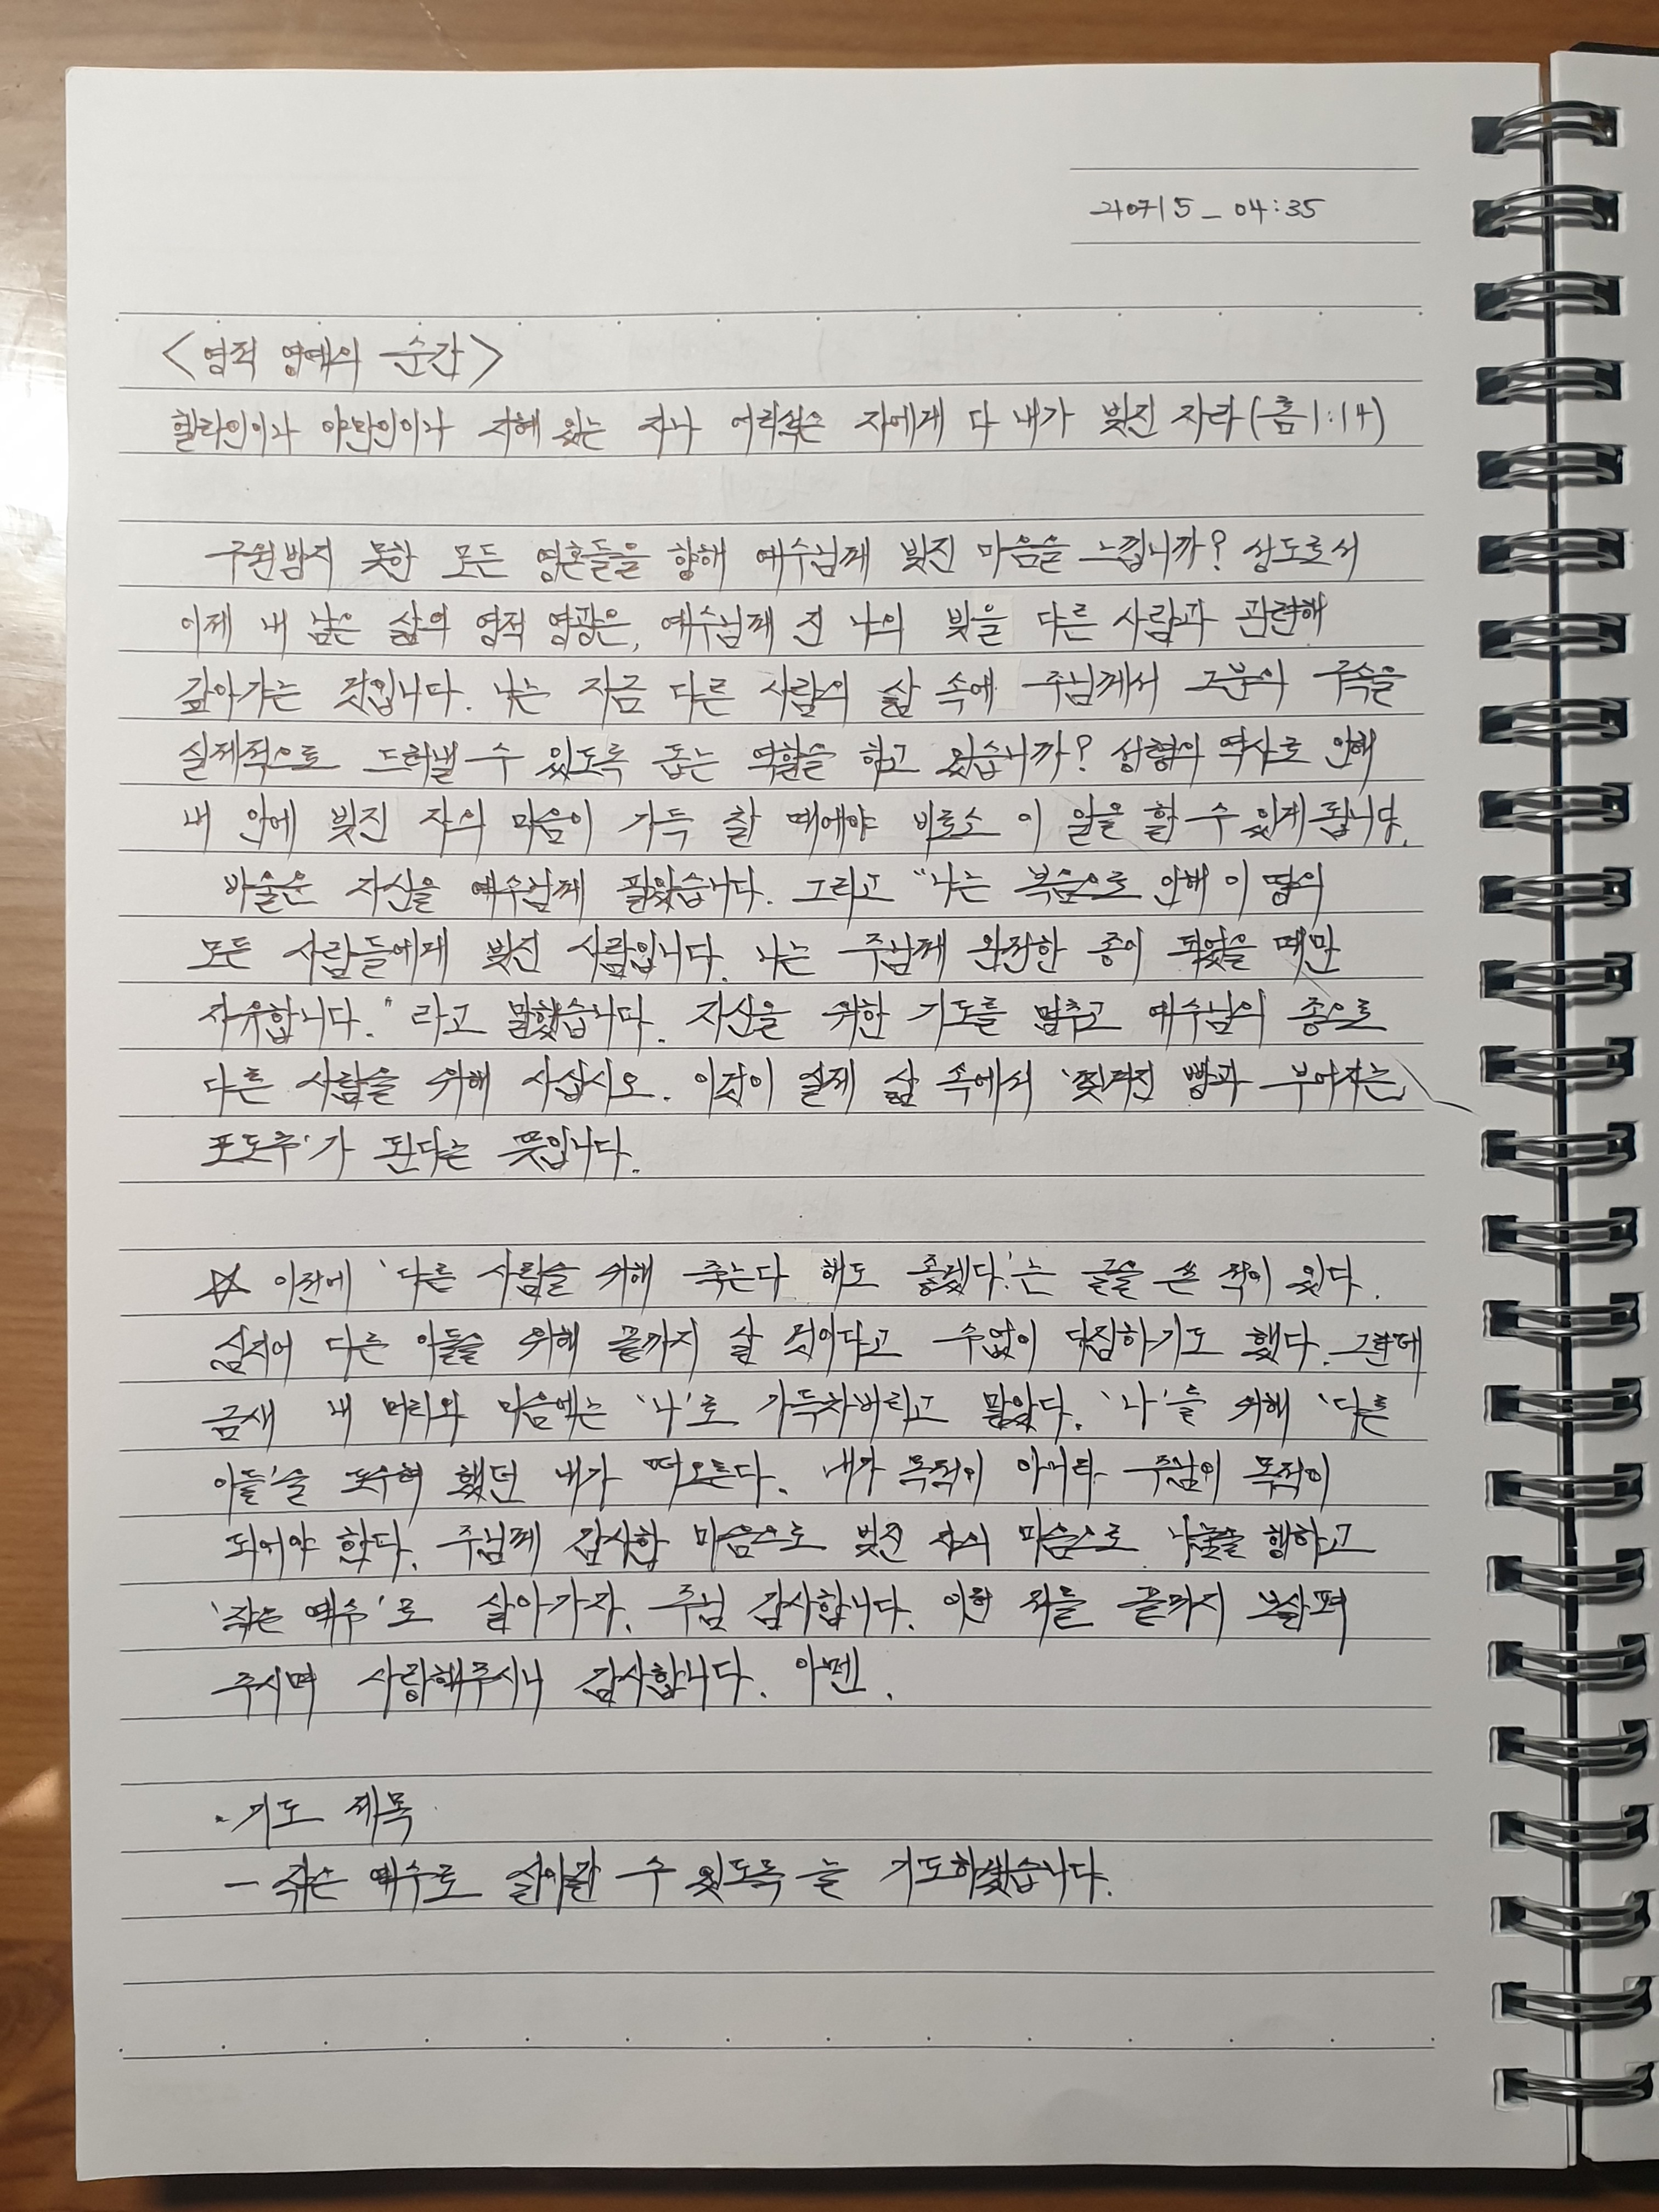 210715_04:35
<영적 명예의 순간>
헬라인이나 야만인이나 지혜 있는 자나 어리석은 자에게 다 내가 빚진 자라(롬1:14)
구원받지 못한 모든 영혼들을 향해 예수님께 빚진 마음을 느낍니까? 성도로서
이제 내 남은 삶의 영적 영광은, 예수님께 진 나의 빚을 다른 사람과 관련해
갚아가는 것입니다. 나는 지금 다른 사람의 삶 속에 주님께서 그분의 구속을
실제적으로 드러낼 수 있도록 돕는 역할을 하고 있습니까? 성령의 역사로 인해
내 안에 빚진 자의 마음이 가득 찰 때에야 비로소 이 일을 할 수 있게 됩니다.
바울은 자신을 예수님께 팔았습니다. 그리고 "나는 복음으로 인해 이 땅의
모든 사람들에게 빚진 사람입니다. 나는 주님께 완전한 종이 되었을 때만
자유합니다." 라고 말했습니다. 자신을 위한 기도를 멈추고 예수님의 종으로
다른 사람을 위해 사십시오. 이것이 실제 삶 속에서 '찢겨진 빵과 부어지는
포도주'가 된다는 뜻입니다.
☆ 이전에 '다른 사람을 위해 죽는다 해도 좋겠다.'는 글을 쓴 적이 있다.
심지어 다른 이들을 위해 끝까지 살 것이다고 수없이 다짐하기도 했다. 그런데
금새 내 머리와 마음에는 '나'로 가득차버리고 말았다. '나'를 위해 '다른
이들'을 도우려 했던 내가 떠오른다. 내가 목적이 아니라 주님이 목적이
되어야 한다. 주님께 감사함 마음으로 빚진 자의 마음으로 나눔을 행하고
'작은 예수'로 살아가자. 주님 감사합니다. 이런 저를 끝까지 보살펴
주시며 사랑해주시니 감사합니다. 아멘.
·기도 제목
- 작은 예수로 살아갈 수 있도록 늘 기도하겠습니다.